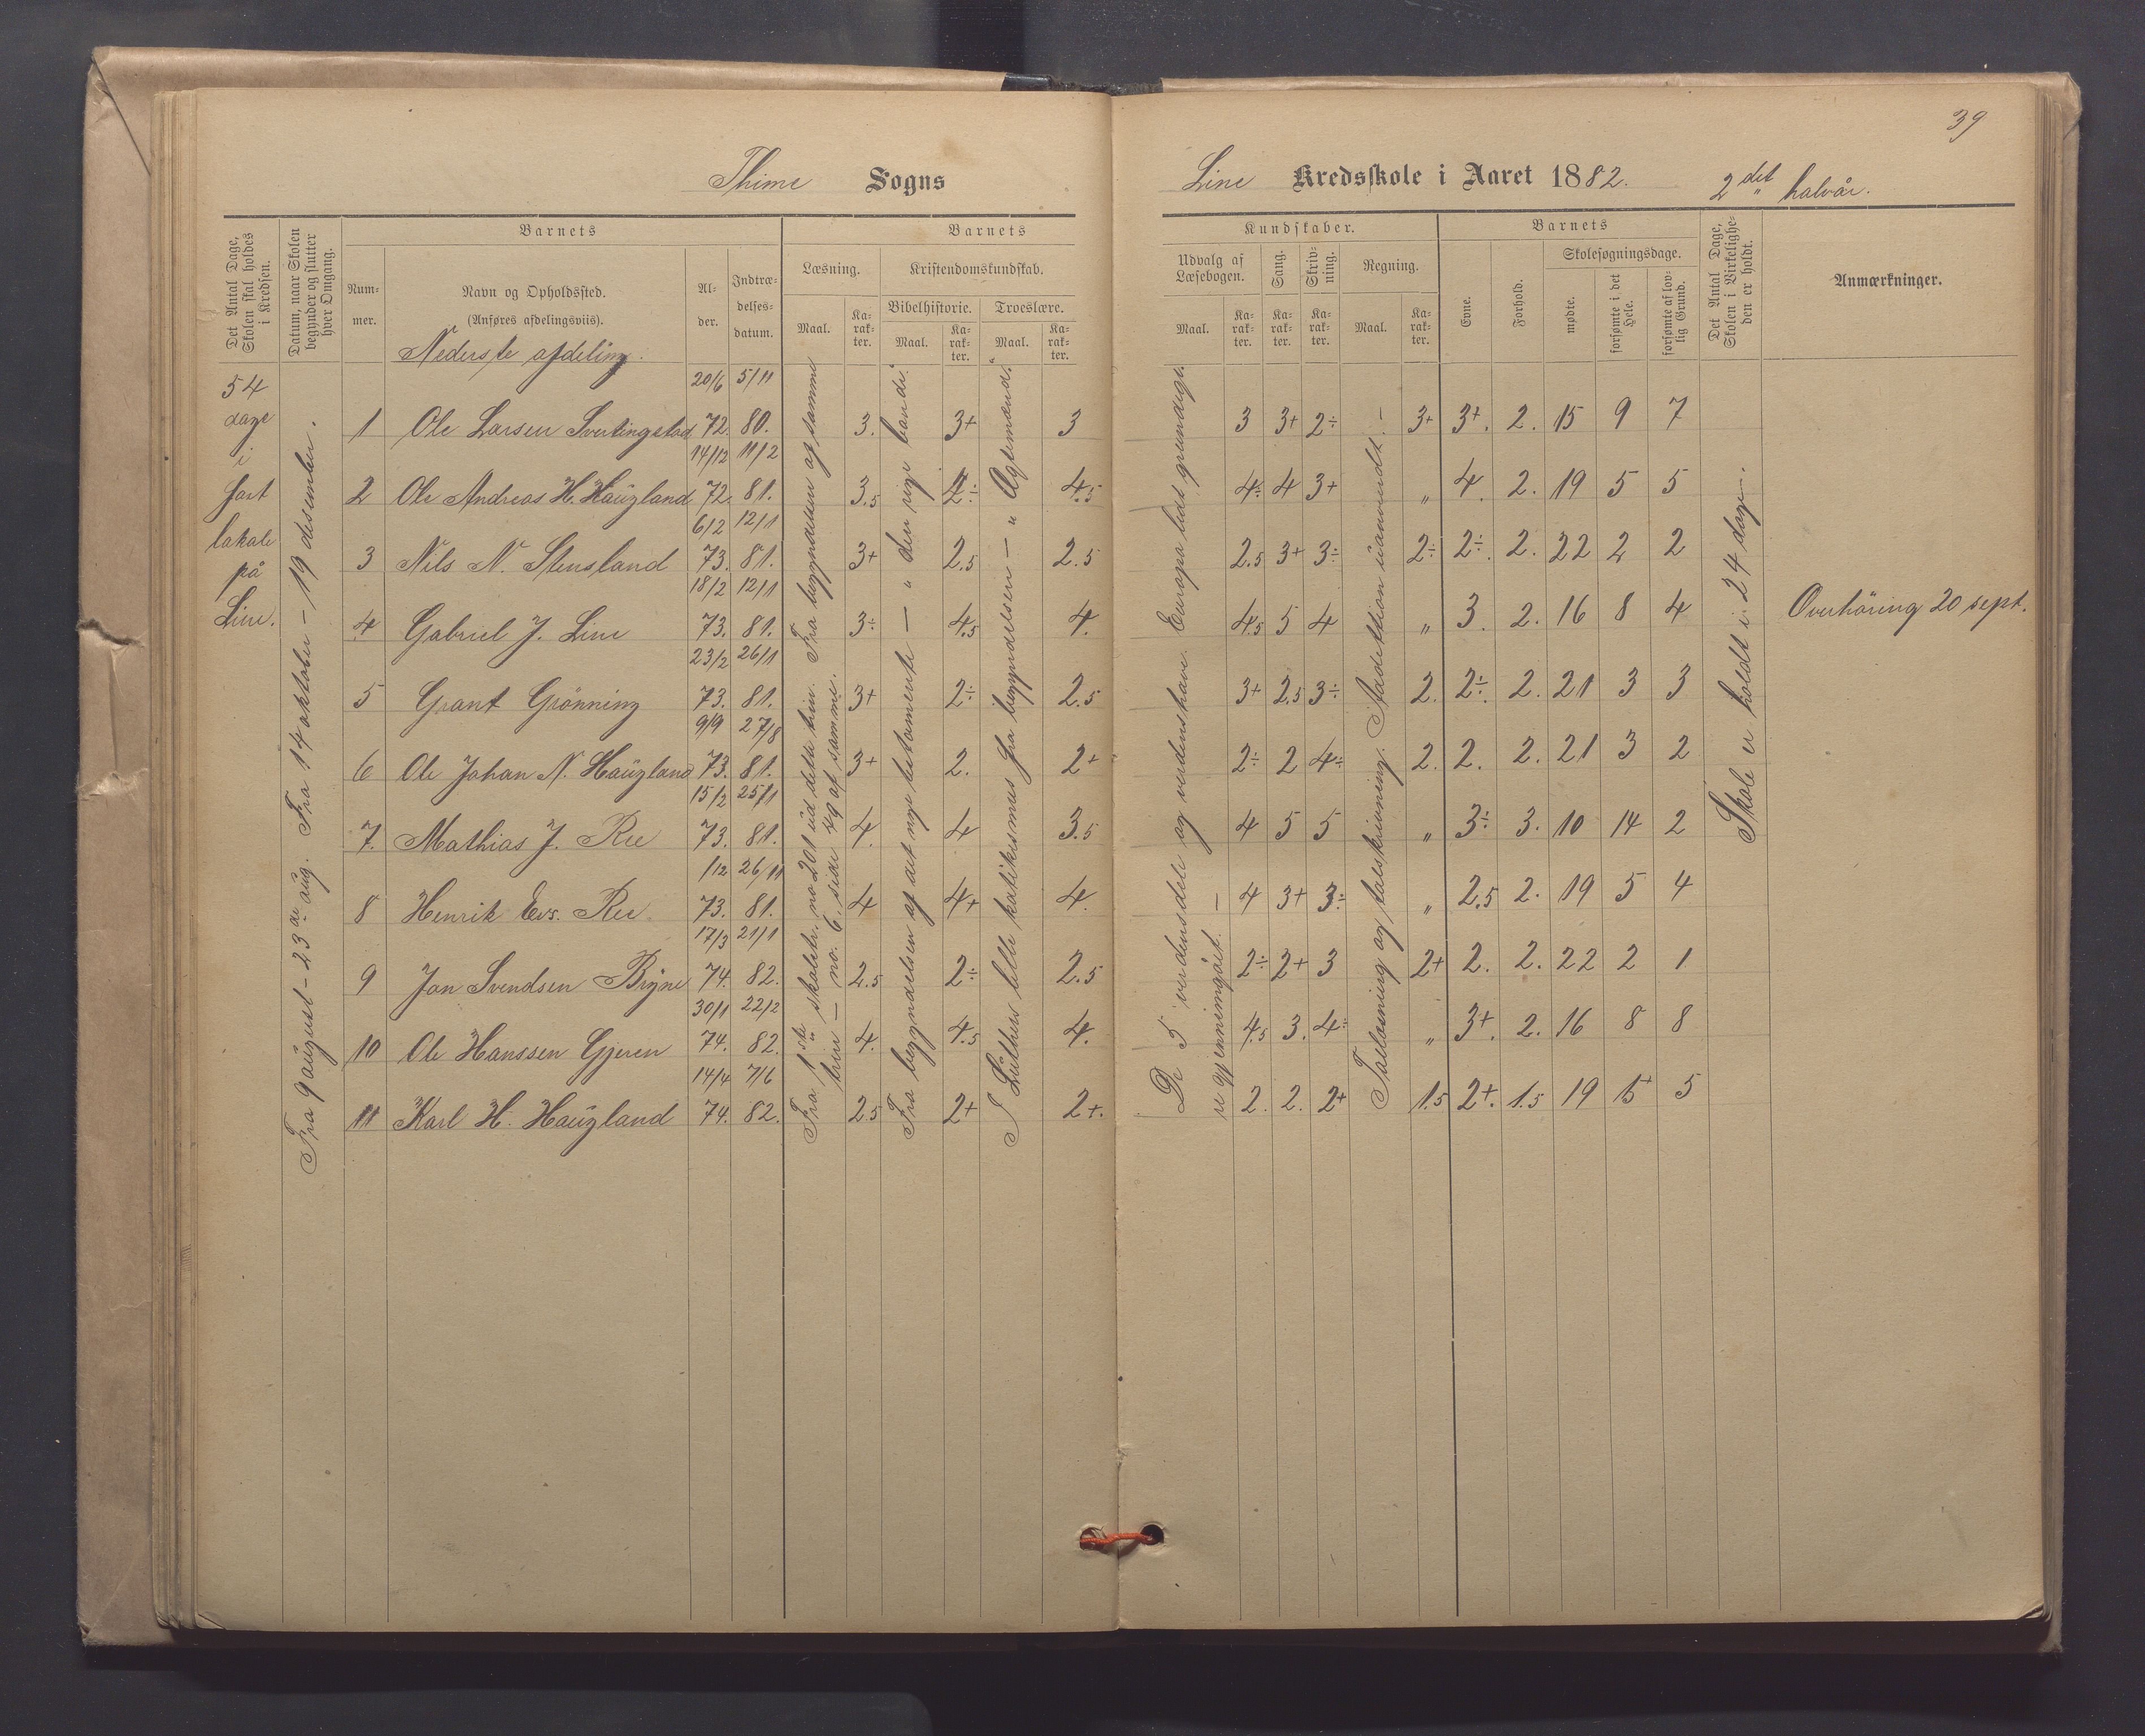 39
Thime Sogns
Line Kredsskole i Aaret 1882. 2det halvår.
Det Antal Dage, Skolen skal holdes i Kredsen.
Datum, naar Skolen begynder og slutter hver Omgang.
Barnets
Num-mer.
Navn og Opholdssted.
(Anføres afdelingsviis).
Nederste afdeling.
Al-der.
Indtræ-delses-datum.
Barnets
Læsning.
Maal.
Ka-rak-ter.
Kristendomskundskab.
Bibelhistorie.
Maal.
Ka-rak-ter.
Troeslære.
Maal.
Ka-rak-ter.
Kundskaber.
Udvalg af Læsebogen.
Maal.
Ka-rak-ter.
Sang.
Ka-rak-ter.
Skriv-ning.
Ka-rak-ter.
Regning.
Maal.
Ka-rak-ter.
Barnets
Evne.
Forhold.
Skolesøgningsdage.
mødte.
forsømte i det Hele.
forsømte af lov-lig Grund.
Det Antal Dage, Skolen i Virkelighe-den er holdt.
Anmærkninger.
54
dage
i
fast
lokale
på
Line.
Fra 9 august - 23de aug. Fra 14 oktober - 19 desember.
Fra 1ste skoletr. no 201 ud dette trin. Fra begyndelsen af samme
trin - no. 6, side 49 af samme.
Fra begyndelsen af det nye testamente - " den rige bonde.
I Luthers lille katekismus fra begyndelsen - " Ægtemænd.
De 5 verdensdele og verdenshave. Europa lidt grundige-
re gjennemgået. -
Tallæsning og talskrivning. Addition uanvendt. -
Skole er holdt i 24 dage.
1 Ole Larsen Svertingstad 20/6 72. 5/11 80. 3. 3+ 3 3 3+ 2÷ 3+ 3+. 2. 15 9 7
2 Ole Andreas H. Haugland 14/12 72. 11/2 81. 3.5 4÷ 4.5 4÷ 4 3+ " 4. 2. 19 5 5
3 Nils N. Stensland 6/2 73. 12/1 81. 3+ 2.5 2.5 2.5 3+ 3÷ 2÷ 2÷. 2. 22 2 2
4 Gabriel J. Line 18/2 73. 12/1 81. 3÷ 4.5 4. 4.5 5 4 " 3. 2. 16 8 4 Overhöring 20 sept.
5 Grant Grönning 23/2 73. 26/1 81. 3+ 2÷ 2.5 3+ 2.5 3÷ 2. 2÷. 2. 21 3 3
6 Ole Johan N. Haugland 9/9 73. 27/8 81. 3+ 2. 2+ 2÷ 2 4÷ 2. 2. 2. 21 3 2
7. Mathias J. Ree 15/2 73. 25/1 81. 4. 4 3.5 4 5 5 " 3÷ 3. 10 14 2
8 Henrik Evs. Ree 1/12 73. 26/11 81. 4 4+ 4. 4 3+ 3÷ " 2.5 2. 19 5 4
9 Jon Svendsen Bryne 17/3 74. 21/1 82. 2.5 2÷ 2.5 2÷ 2+ 3 2+ 2. 2. 22 2 1
10 Ole Hanssen Gjeren 30/1 74. 22/2 82. 4. 4.5 4. 4.5 3. 4÷ " 3+. 2. 16 8 8
11 Karl H. Haugland 14/4 74. 7/6 82. 2.5 2+ 2+. 2. 2. 2+ 1.5 2+. 1.5 19 5 5